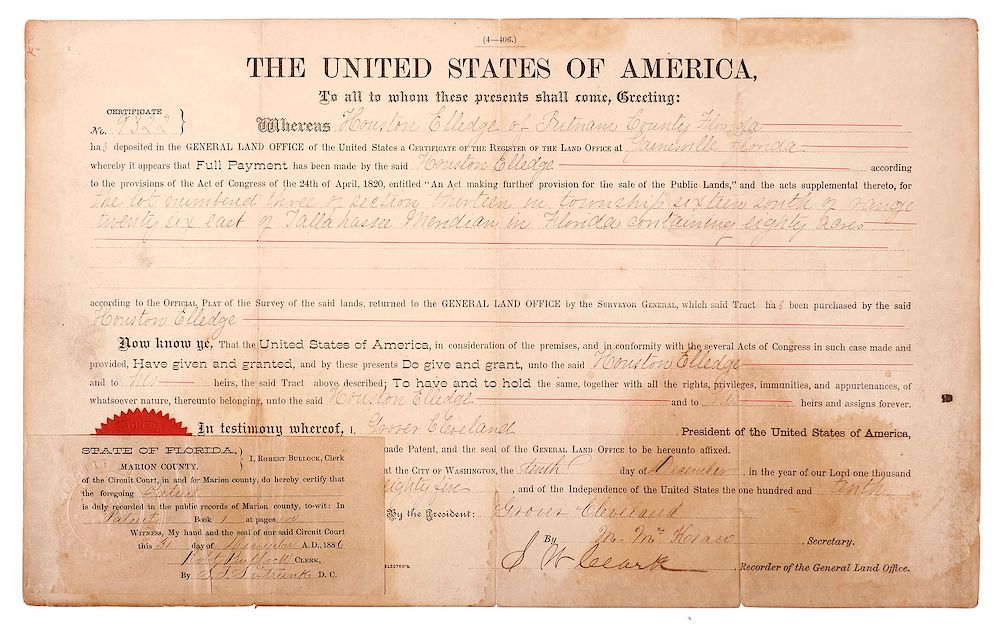 (4—406.)
THE UNITED STATES OF AMERICA,
To all to whom these presents shall come, Greeting:
CERTIFICATE
No. 9322
Whereas Houston Elledge of Putnam County Florida
has deposited in the GENERAL LAND OFFICE of the United States a CERTIFICATE OF THE REGISTER OF THE LAND OFFICE AT Gainesville Florida
whereby it appears that Full Payment has been made by the said Houston Elledge according
to the provisions of the Act of Congress of the 24th of April, 1820, entitled "An Act making further provision for the sale of the Public Lands," and the acts supplemental thereto, for
the lot numbered three of section thirteen in township sixteen south of range
twenty six east of Tallahassee Meridian in Florida containing eighty acres
according to the OFFICIAL PLAT of the Survey of the said lands, returned to the GENERAL LAND OFFICE by the SURVEYOR GENERAL, which said Tract has been purchased by the said
Houston Elledge
Now know ye, That the United States of America, in consideration of the premises, and in conformity with the several Acts of Congress in such case made and
provided, Have given and granted, and by these presents Do give and grant, unto the said Houston Elledge
and to his heirs, the said Tract above described; To have and to hold the same, together with all the rights, privileges, immunities, and appurtenances, of
whatsoever nature, thereunto belonging, unto the said Houston Elledge and to his heirs and assigns forever.
In testimony whereof, I, Grover Cleveland President of the United States of America,
made Patent, and the seal of the GENERAL LAND OFFICE to be hereunto affixed.
at the CITY OF WASHINGTON, the tenth day of December, in the year of our Lord one thousand
eighty five, and of the Independence of the United States the one hundred and tenth
By the President: Grover Cleveland
By M. McKean, Secretary.
S W Clark Recorder of the General Land Office.
STATE OF FLORIDA,
MARION COUNTY.
I, ROBERT BULLOCK, Clerk
of the Circuit Court, in and for Marion county, do hereby certify that
the foregoing Patent
is duly recorded in the public records of Marion county, to-wit: In
Patents Book 1 at pages
WITNESS, My hand and the seal of our said Circuit Court
this 31 day of December A.D., 1886
Robt Bullock CLERK,
By D. C.